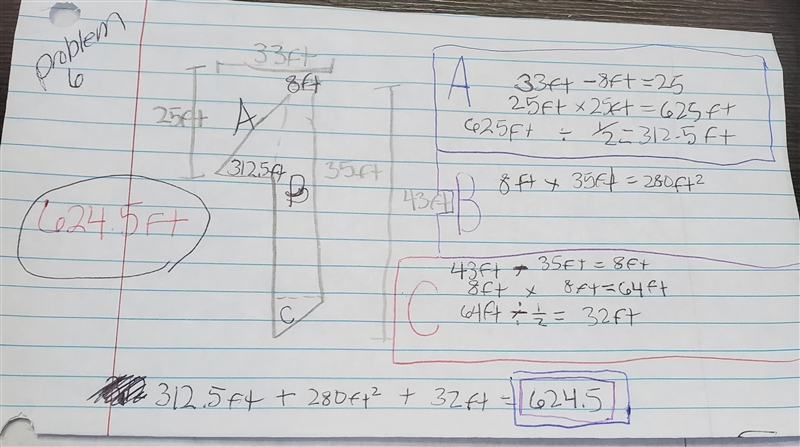 problem
6
33ft
8ft
25ft
A
312.5ft
B
35ft
43ft
C
624.5ft
A
33ft - 8ft = 25
25ft × 25ft = 625ft
625ft ÷ 1/2 = 312.5ft
B
8ft × 35ft = 280ft²
C
43ft - 35ft = 8ft
8ft × 8ft = 64ft
64ft ÷ 1/2 = 32ft
312.5ft + 280ft² + 32ft = 624.5